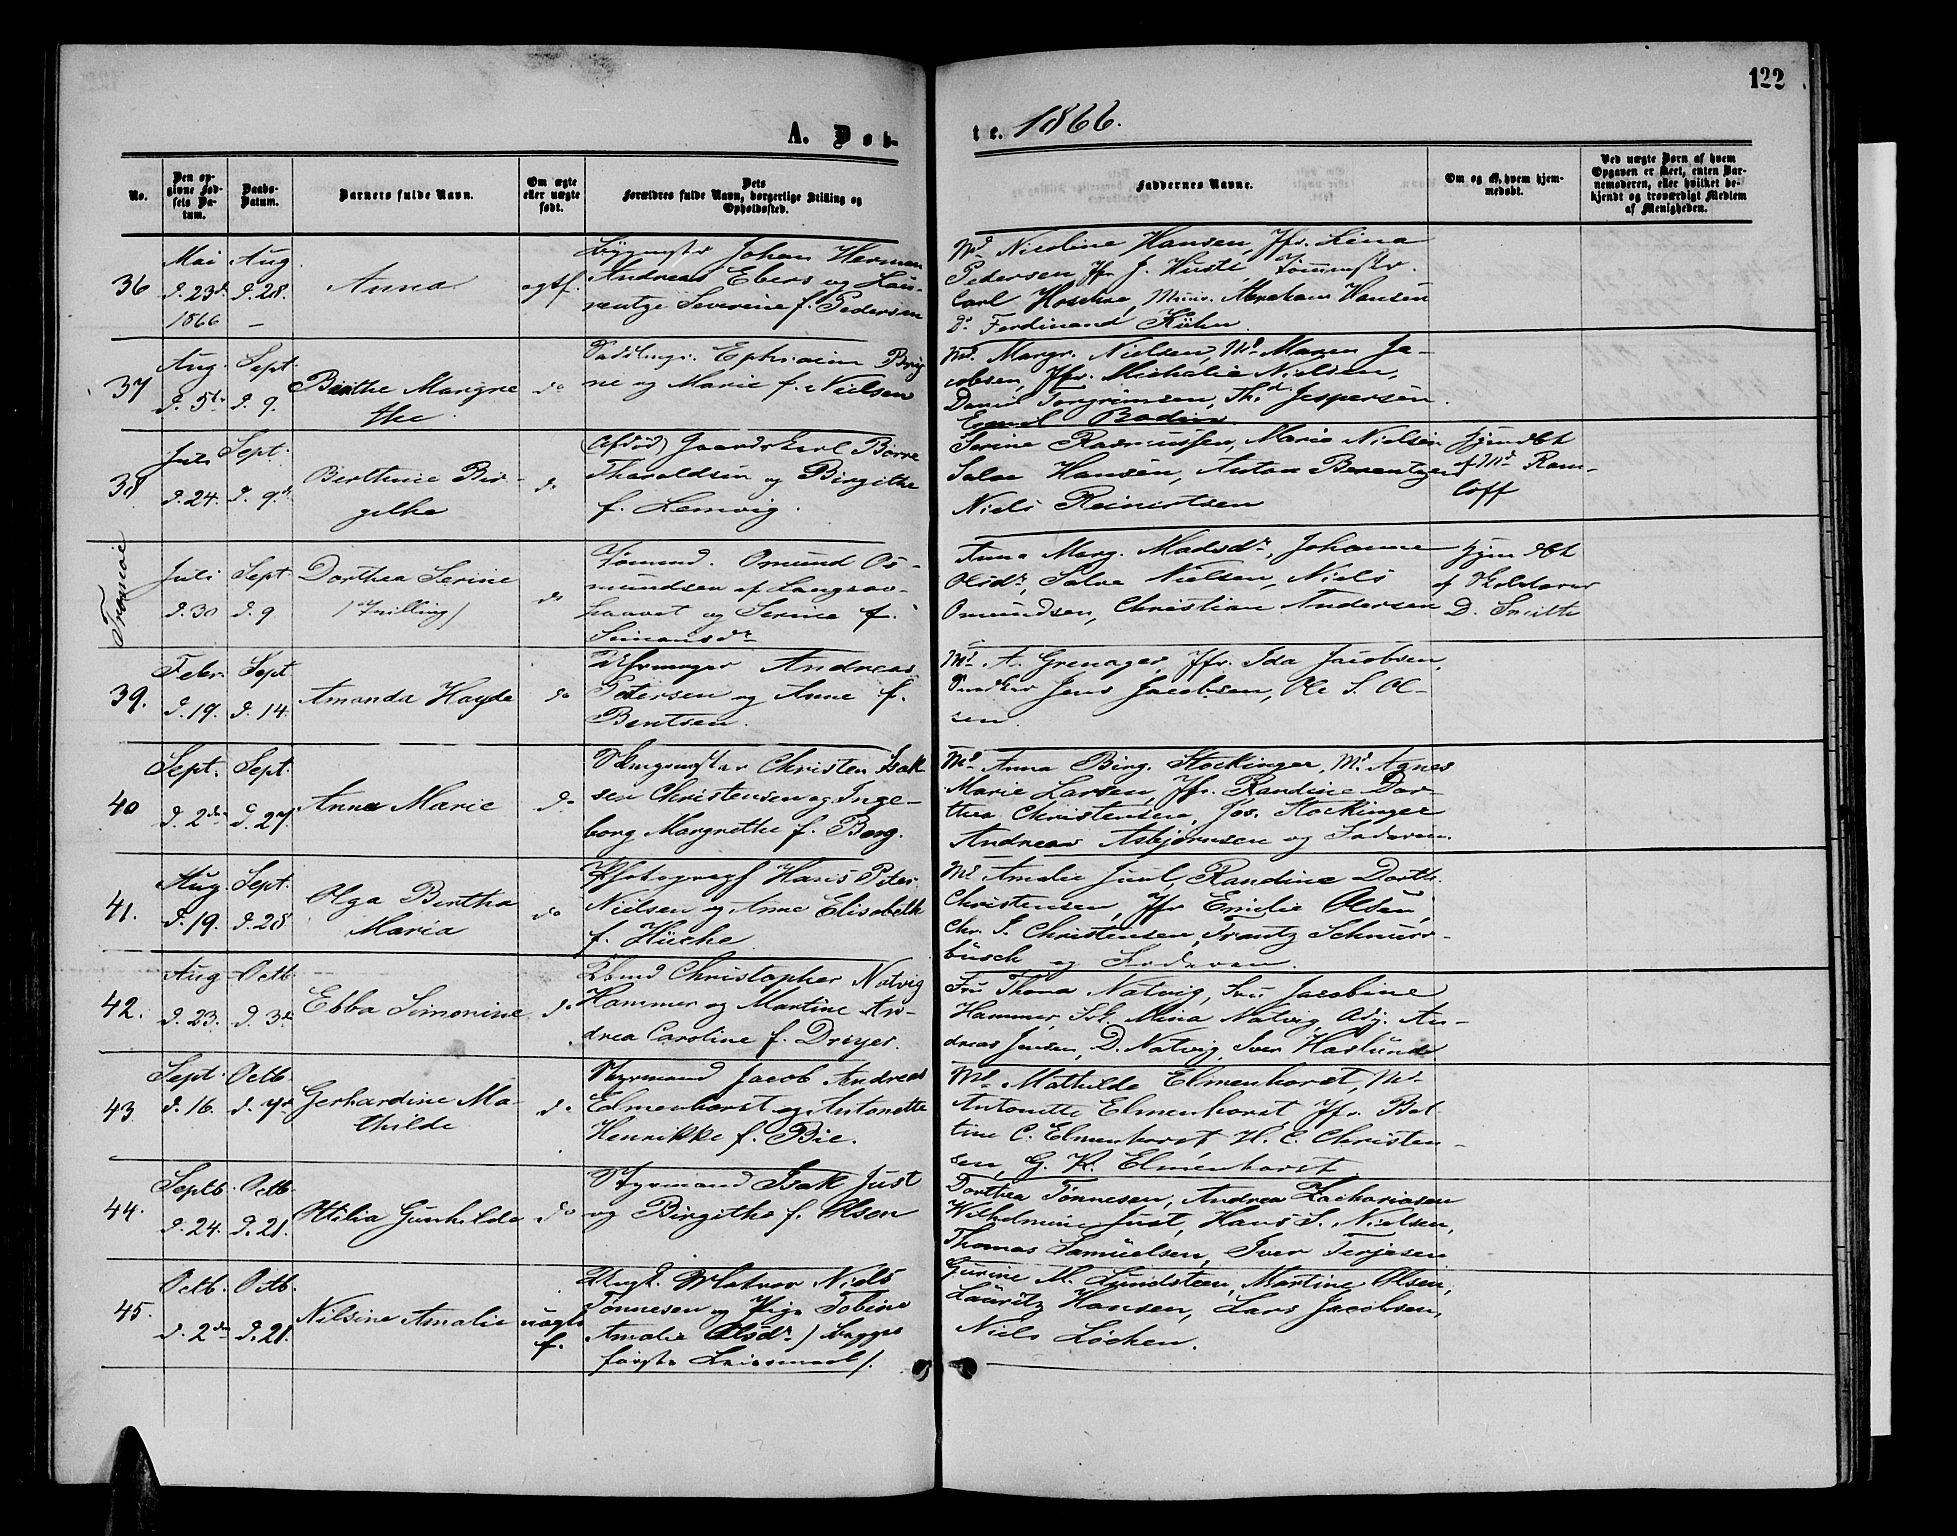 122
A. Døb-
te. 1866.
No.
Den op-
givne Fød-
sels Da-
tum.
Daabs-
Datum.
Barnets fulde Navn.
Om ægte
eller uægte
født.
Dets
Forældres fulde Navn, borgerlige Stilling og
Opholdssted.
Faddernes Navne.
Om og af hvem hjem-
medøbt.
Ved uægte Børn af hvem
Opgaven er skeet, enten Bar-
nemoderen, eller hvilket be-
kjendt og troværdigt Medlem
af Menigheden.
36
Mai
d. 23d
1866
Aug.
d. 28.
Anna
egtf.
Johan Herman
Andreas Ebers og Lau-
rentze Severine f. Pedersen
Md Nicoline Hansen, Jfr. Lina
Pedersen, Jfr J. Husti, Tømmerstr.
Carl Hoschke, Abraham Hansen
do Ferdinand Kühn.
37
Aug.
d. 5te
Sept.
d. 9.
Berthe Margre
the
do
Ephraim Bryg
ne og Marie f. Nielsen
Md. Margr. Nielsen, Md Maren Ja-
cobsen, Jfr. Michalie Nielsen,
Daniel Torgrimsen, Thd. Jespersen.
Emil Bodin.
38
Juli
d. 24.
Sept.
d. 9d
Berthine Bir-
githe
do
(Afdød) Gaardskarl Børre
Tharaldsen og Birgithe
f. Lemvig.
Serine Rasmussen, Marie Nielsen
Salve Hansen, Anton Berentzen
Niels Reinertsen
hjemdbt
af Md Ram-
löff
Tromøie
Juli
d. 30
Sept.
d. 9
Dorthea Serine
/Tvilling/
do
Tømmd. Omund Os-
mundsen af Langsæv-
haavet og Serine f.
Simonsdr
Anna Marg. Madsdr, Johanne
Olsdr, Salve Nielsen, Niels
Omundsen, Christian Andersen
hjemdbt
af Skolelærer
D. Smith
39.
Febr.
d. 19.
Sept
d. 14.
Amanda Hayde
do
Uhrmager Andreas
Petersen og Anne f.
Bentsen.
Md A. Grenager, Jfr. Ida Jacobsen,
Snedker Jens Jacobsen, Ole S. Ol-
sen.
40
Sept.
d. 2den
Sept.
d. 27.
Anna Marie
do
Christen Isak
sen Christensen og Inge-
borg Margrethe f. Berg.
Md Anna Birg. Stockinger, Md. Agnes
Marie Larsen, Jfr. Randine Dor-
thea Christensen, Jos. Stockinger
Andreas Asbjørnsen og Faderen.
41.
Aug.
d. 19.
Sept.
d. 28
Olga Bertha
Maria
do
Photograf Hans Peter
Nielsen og Anne Elisabeth
f. Hüche
Md Amalie Juul, Randine Dorth.
Christensen, Jfr Emilie Olsen,
Chr. I. Christensen, Frantz Schnurr-
busch og Faderen.
42.
Aug
d. 23.
Octb.
d. 3d
Ebba Simonine
do
Christopher Natvig
Hammer og Martine An-
drea Caroline f. Dreyer.
Fru Thona Natvig, Fru Jacobine
Hammer, Frk. Mina Natvig, Adj. An-
dreas Jensen, D. Natvig, Iver Haslund
43
Sept.
d. 16.
Octb.
d. 7d
Gerhardine Ma-
thilde
do
Styrmand Jacob Andreas
Elmenhorst og Antonette
Henrikke f. Bie.
Md Mathilde Elmenhorst, Md.
Antonette Elmenhorst, Jfr. Bel-
tine C. Elmenhorst, H. C. Christen-
sen, G. K. Elmenhorst
44.
Septb.
d. 24.
Octb.
d. 21.
Otilia Gunhilde
do
Styrmand Isak Just
og Birgithe f. Olsen
Dorthea Tønnesen, Andrea Zachariasen
Wilhelmine Just, Hans S. Nielsen,
Thomas Samuelsen, Iver Terjesen
45.
Octb.
d. 2den
Octb.
d. 21.
Nilsine Amalie
uægte
f.
Ungk. Matros Niels
Tønnesen og Pige Tobine
Amalie Olsdr / begges
første Leiermaal /.
Gurine M. Lundsteen, Martine Olsen,
Lauritz Hansen, Lars Jacobsen,
Niels Løchen.